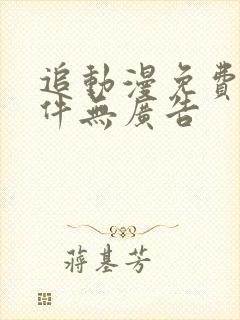 追動漫免費
件無廣告
蔣基芳